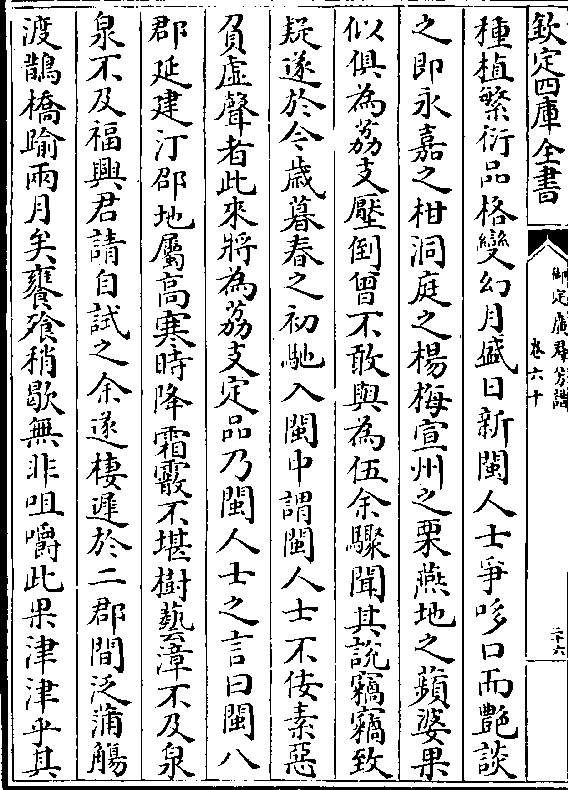 欽定四庫全書
御定廣羣芳譜
卷六十
二十六
種植繁衍品格變幻月盛日新閩人士爭哆口而艷談
之即永嘉之柑洞庭之楊梅宣州之栗燕地之蘋婆果
似俱為荔支壓倒曾不敢與為伍余驟聞其說竊竊致
疑遂於今歲暮春之初馳入閩中謂閩人士不佞素惡
負虛聲者此來將為荔支定品乃閩人士之言曰閩八
郡延建汀邵地屬高寒時降霜霰不堪樹藝漳不及泉
泉不及福興君請自試之余遂棲遲於二郡間泛蒲觴
渡鵲橋踰兩月矣饔飱稍歇無非咀嚼此果津津乎其